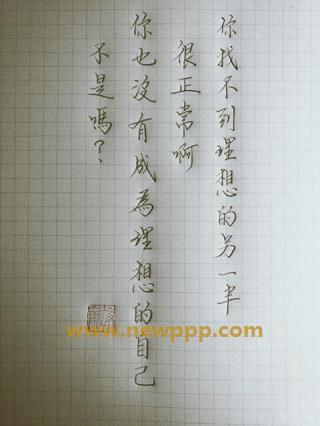 你找不到理想的另一半
很正常啊
你也沒有成為理想的自己
不是嗎？
www.newppp.com